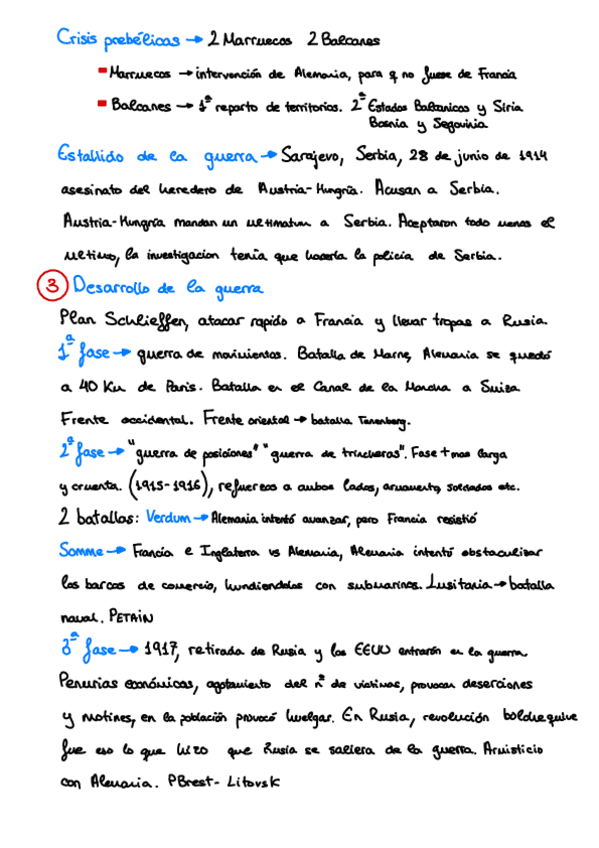 Crisis prebélicas → 2 Marruecos 2 Balcanes
Marruecos → intervención de Alemania, para q no fuese de Francia
Balcanes → 1ª reparto de territorios. 2ª Estados Baltanicos y Siria
Bosnia y Segovinia
Estallido de la guerra → Sarajevo, Serbia, 28 de junio de 1914
asesinato del heredero de Austria-Hungría. Acusan a Serbia.
Austria-Hungría mandan un ultimatum a Serbia. Aceptaron todo menos el
ultimo, la investigacion tenia que hacerla la policia de Serbia.
3 Desarrollo de la guerra
Plan Schlieffen, atacar rapido a Francia y llevar tropas a Rusia.
1ª fase → guerra de movimientos. Batalla de Marne, Alemania se quedó
a 40 Km de Paris. Batalla en el Canal de la Mancha a Suiza
Frente occidental. Frente oriental → batalla Tanenberg.
2ª fase → "guerra de posiciones" "guerra de trincheras". Fase + mas larga
y cruenta. (1915-1916), refuerzos a ambos lados, armamento, soldados etc.
2 batallas: Verdum → Alemania intentó avanzar, pero Francia resistió
Somme → Francia e Inglaterra vs Alemania, Alemania intentó obstaculizar
los barcos de comercio, hundiendolos con submarinos. Lusitania → batalla
naval. PETAIN
3ª fase → 1917, retirada de Rusia y los EEUU entraron en la guerra
Penurias económicas, agotamiento del nº de victimas, provocan deserciones
y motines, en la población provocó huelgas. En Rusia, revolución bolchequive
fue eso lo que hizo que Rusia se saliera de la guerra. Armisticio
con Alemania. PBrest-Litovsk